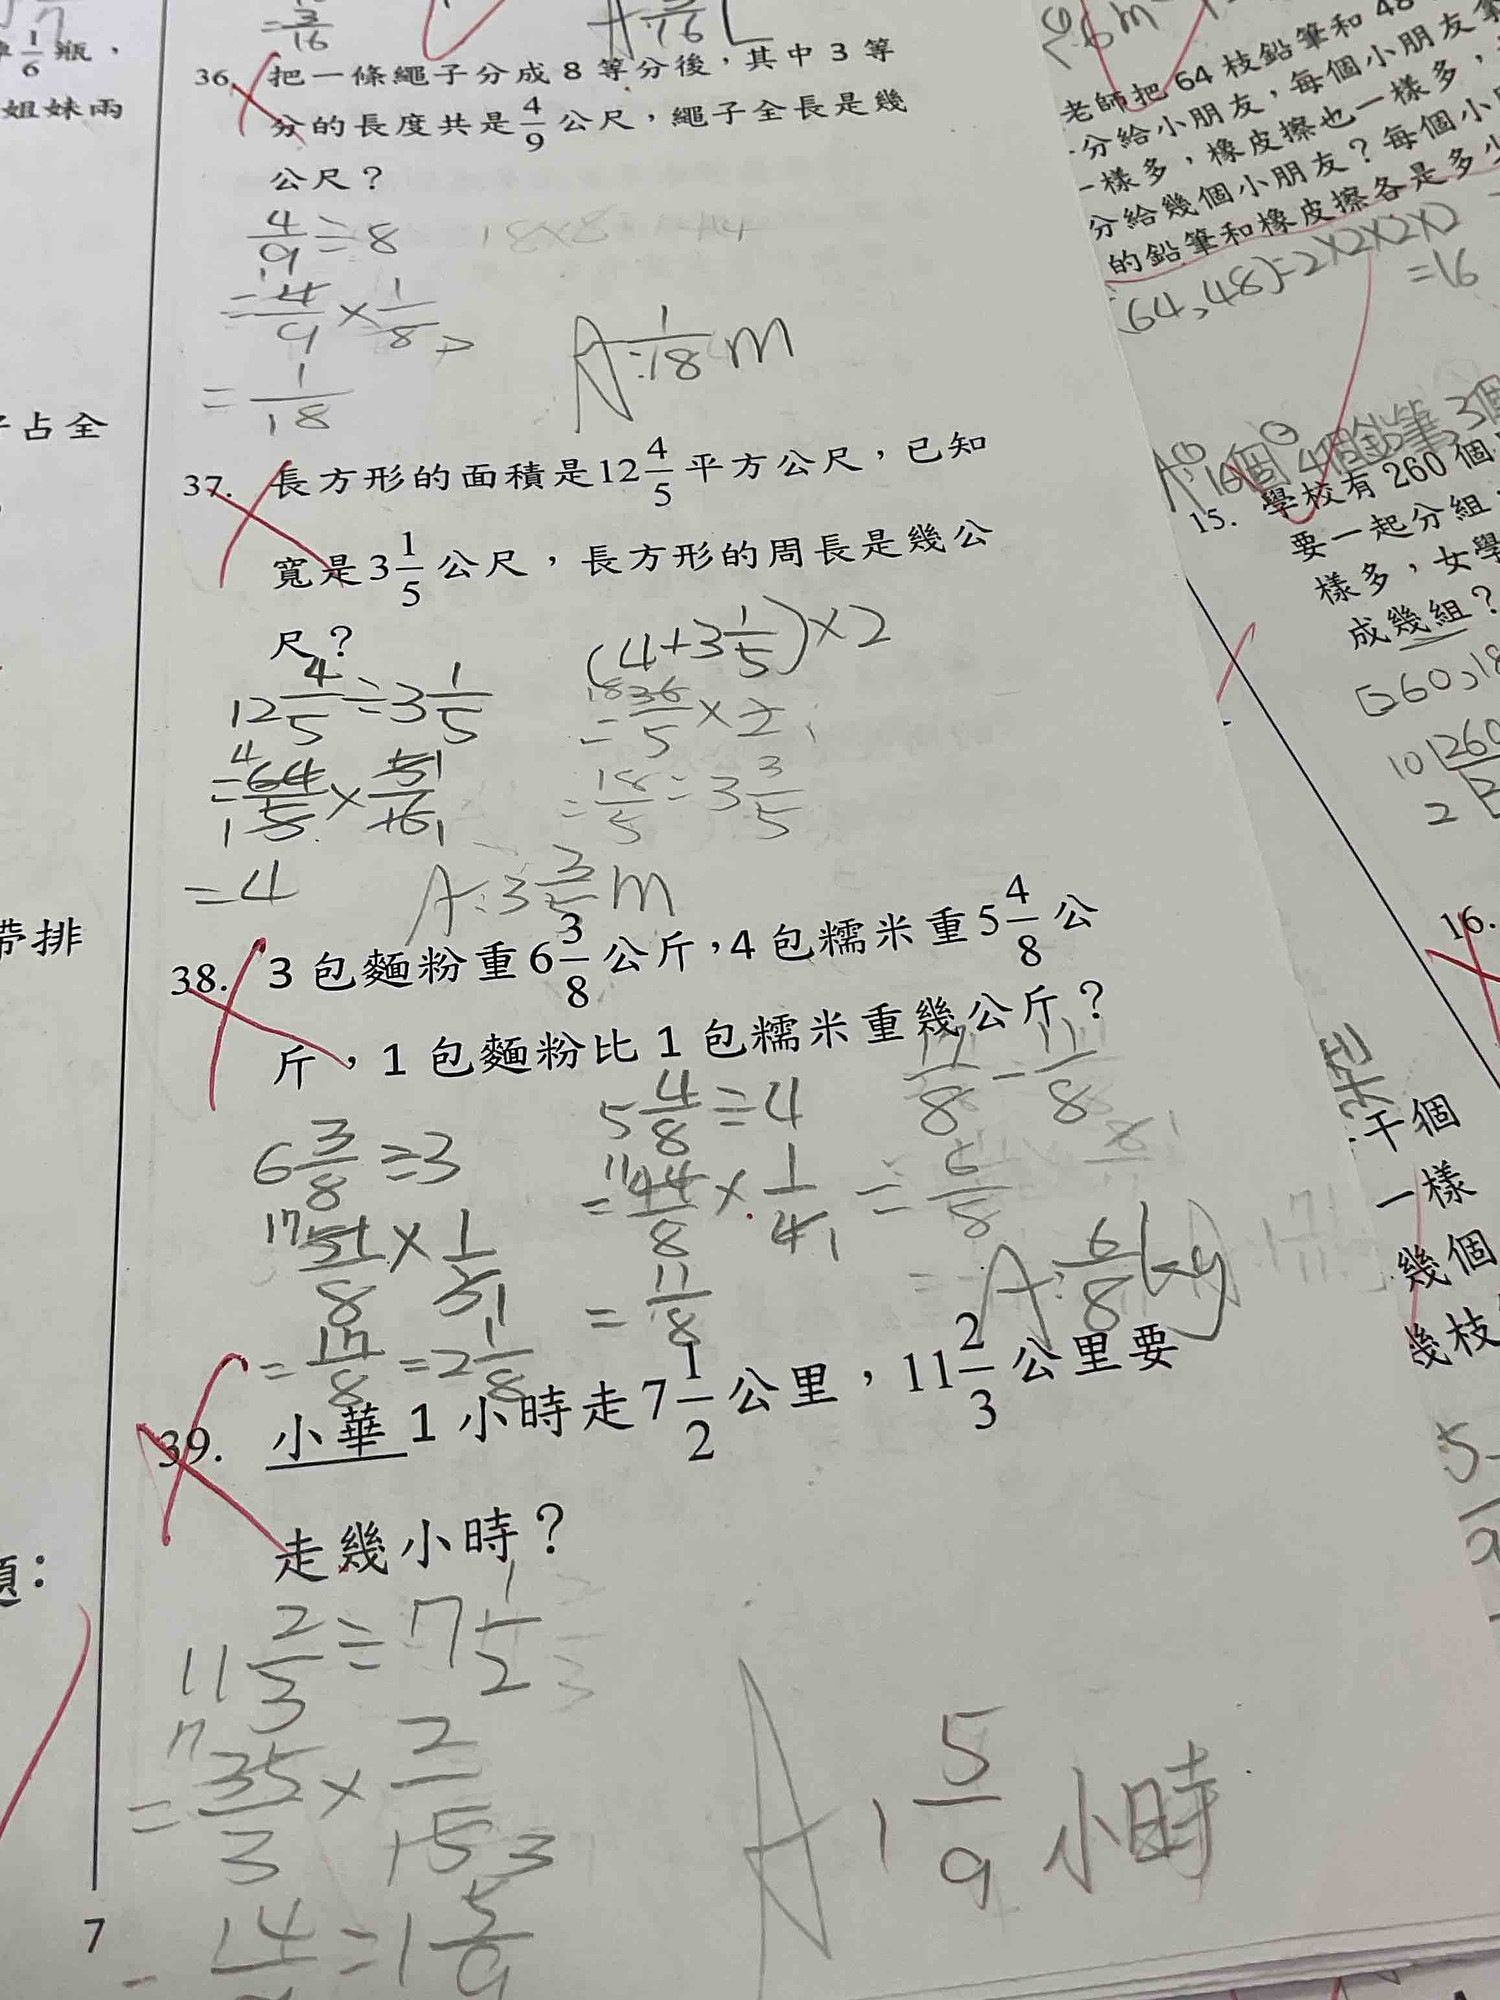 1/6 瓶，
姐妹兩
占全
帶排
題：
7
= 3/16
36. 把一條繩子分成 8 等分後，其中 3 等
分的長度共是 4/9 公尺，繩子全長是幾
公尺？
4/9 ÷ 8
= 4/9 × 1/8
= 1/18
A: 1/18 m
37. 長方形的面積是12 4/5 平方公尺，已知
寬是3 1/5 公尺，長方形的周長是幾公
尺？
12 4/5 ÷ 3 1/5
= 64/5 × 5/16
= 4
(4+3 1/5)×2
= 36/5 × 2
= 18/5 = 3 3/5
A: 3 3/5 m
38. 3 包麵粉重6 3/8 公斤，4 包糯米重5 4/8 公
斤，1 包麵粉比 1 包糯米重幾公斤？
6 3/8 ÷ 3
17 51/8 × 1/3 1
= 17/8 = 2 1/8
5 4/8 ÷ 4
= 11 44/8 × 1/4 1
= 11/8
17/8 - 11/8
= 6/8
A: 6/8 kg
39. 小華 1 小時走7 1/2 公里，11 2/3 公里要
走幾小時？
11 2/3 ÷ 7 1/2
= 7 35/3 × 2/15 3
= 14/9 = 1 5/9
A 1 5/9 小時
老師把 64 枝鉛筆和 48
分給小朋友，每個小朋友
一樣多，橡皮擦也一樣多，
分給幾個小朋友？每個小
的鉛筆和橡皮擦各是多少
(64,48)=2×2×2×2
=16
A: ① 16個 ② 4個鉛筆, 3個
15. 學校有 260 個
要一起分組，
樣多，女學
成幾組？
[260,18
10 260
2
16.
干個
一樣
幾個
幾枝